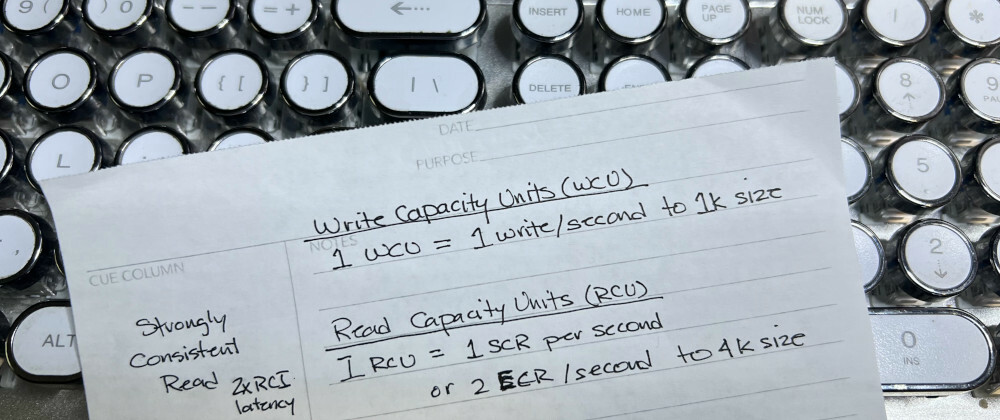 9 (
0 )
- -
= +
<···
INSERT
HOME
PAGE UP
NUM LOCK
/
*
O
P
{ [
} ]
| \
DELETE
8
9
L
DATE
PURPOSE
5
Write Capacity Units (WCU)
NOTES
1 WCU = 1 write/second to 1k size
,
2
CUE COLUMN
Read Capacity Units (RCU)
Strongly
Consistent
Read 2xRCI
latency
1 RCU = 1 SCR per second
or 2 ECR/second to 4k size
ALT
0
INS